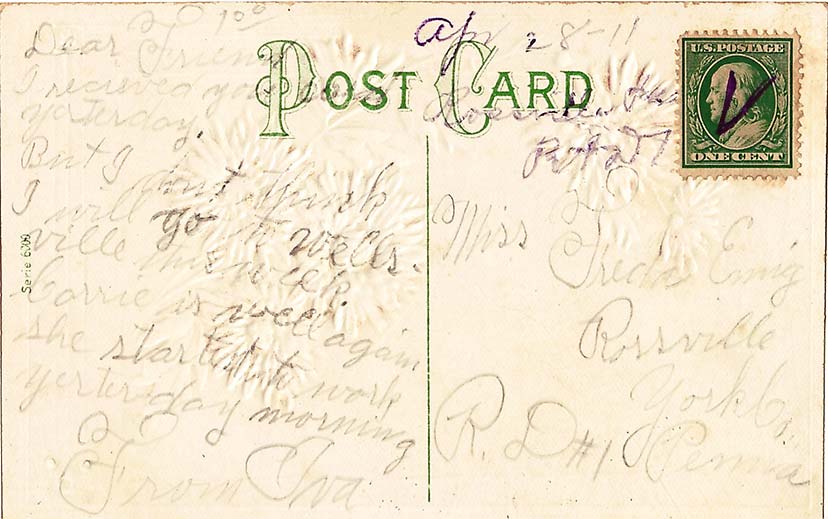 Dear Friend
I recieved your card
yesterday.
But I dont think
I will go to Wells-
ville this week.
Carrie is well again
she started to work
yesterday morning
From Iva
Serie 6309
POST CARD
Apr 28-11
Rossville
U.S. POSTAGE
ONE CENT
Miss Freda Emig
Rossville
York Co,
R. D. #1 Penna